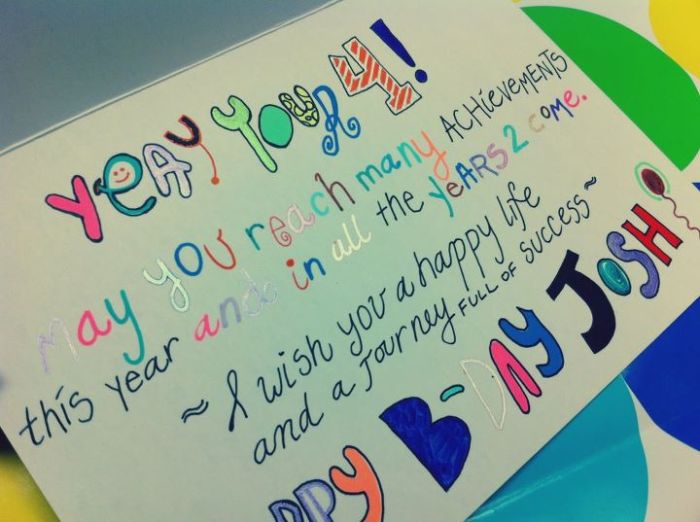 YEAY, YOUR 4!
may you reach many ACHiEVEMENTS
this year and in all the YEARS 2 come.
~ I wish you a happy life
and a journey FULL OF success ~
PPY B-DAY JOSH!